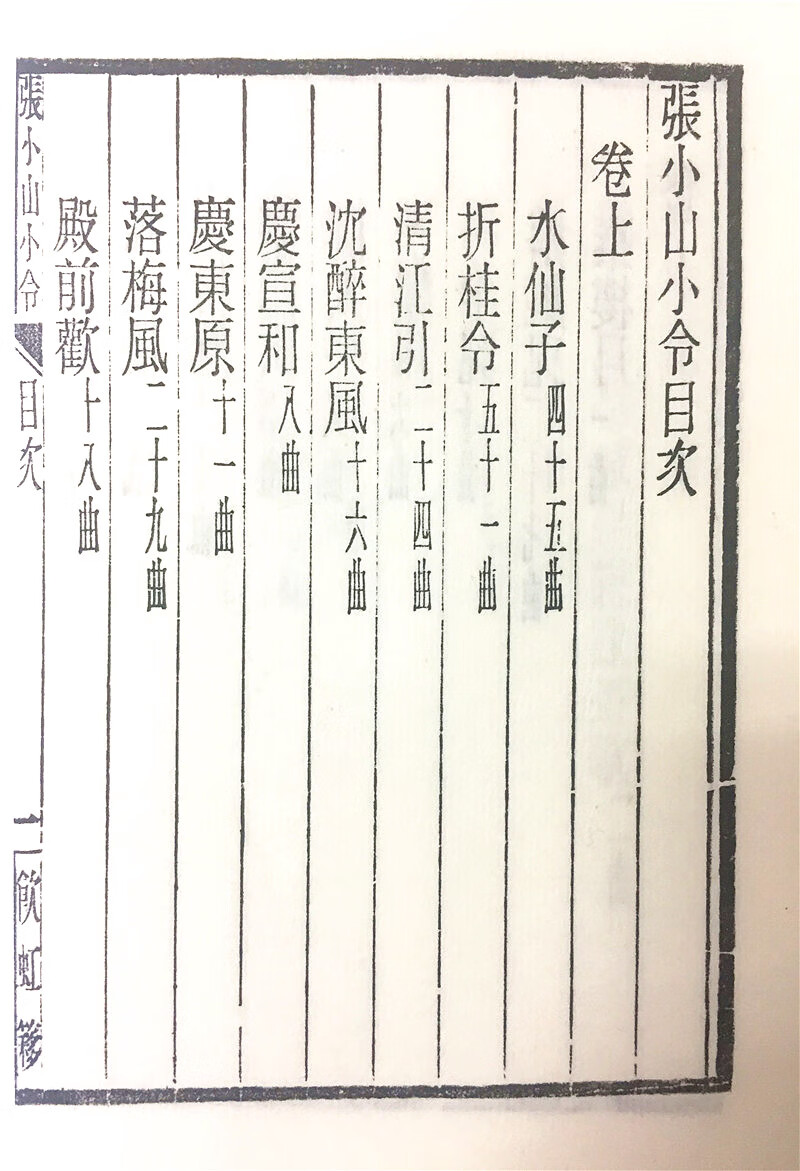 張小山小令目次
卷上
水仙子四十五曲
折桂令五十一曲
清江引二十四曲
沈醉東風十六曲
慶宣和八曲
慶東原十一曲
落梅風二十九曲
殿前歡十八曲
張小山小令 目次 一 飲虹簃